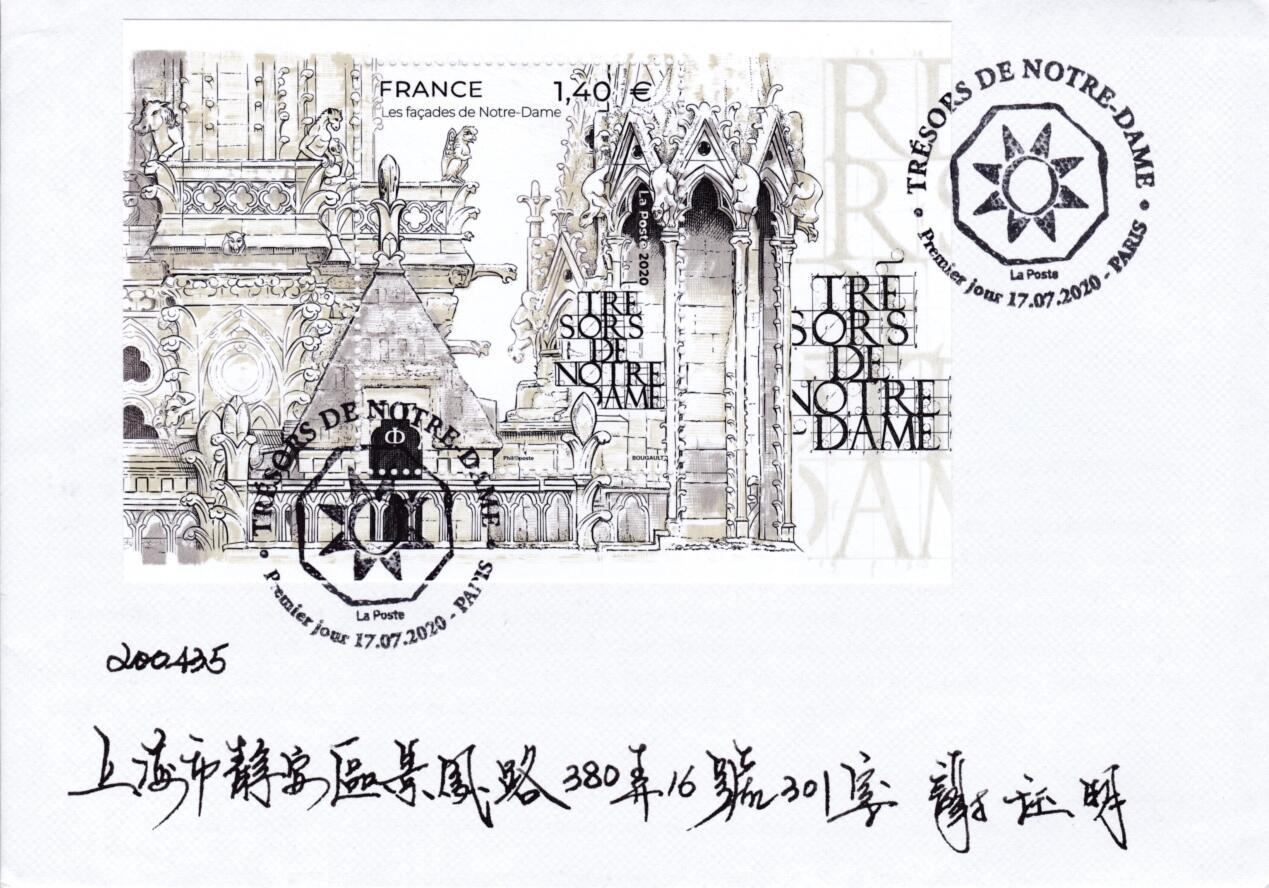 FRANCE 1,40 €
Les façades de Notre-Dame
La Poste 2020
TRÉ
SORS
DE
NOTRE
DAME
TRÉ
SORS
DE
NOTRE
DAME
Phil@poste
BOUGAULT
TRÉSORS DE NOTRE-DAME
La Poste
Premier jour 17.07.2020 - PARIS
TRÉSORS DE NOTRE-DAME
La Poste
Premier jour 17.07.2020 - PARIS
200435
上海市静安區景鳳路380弄16號301室 謝 明